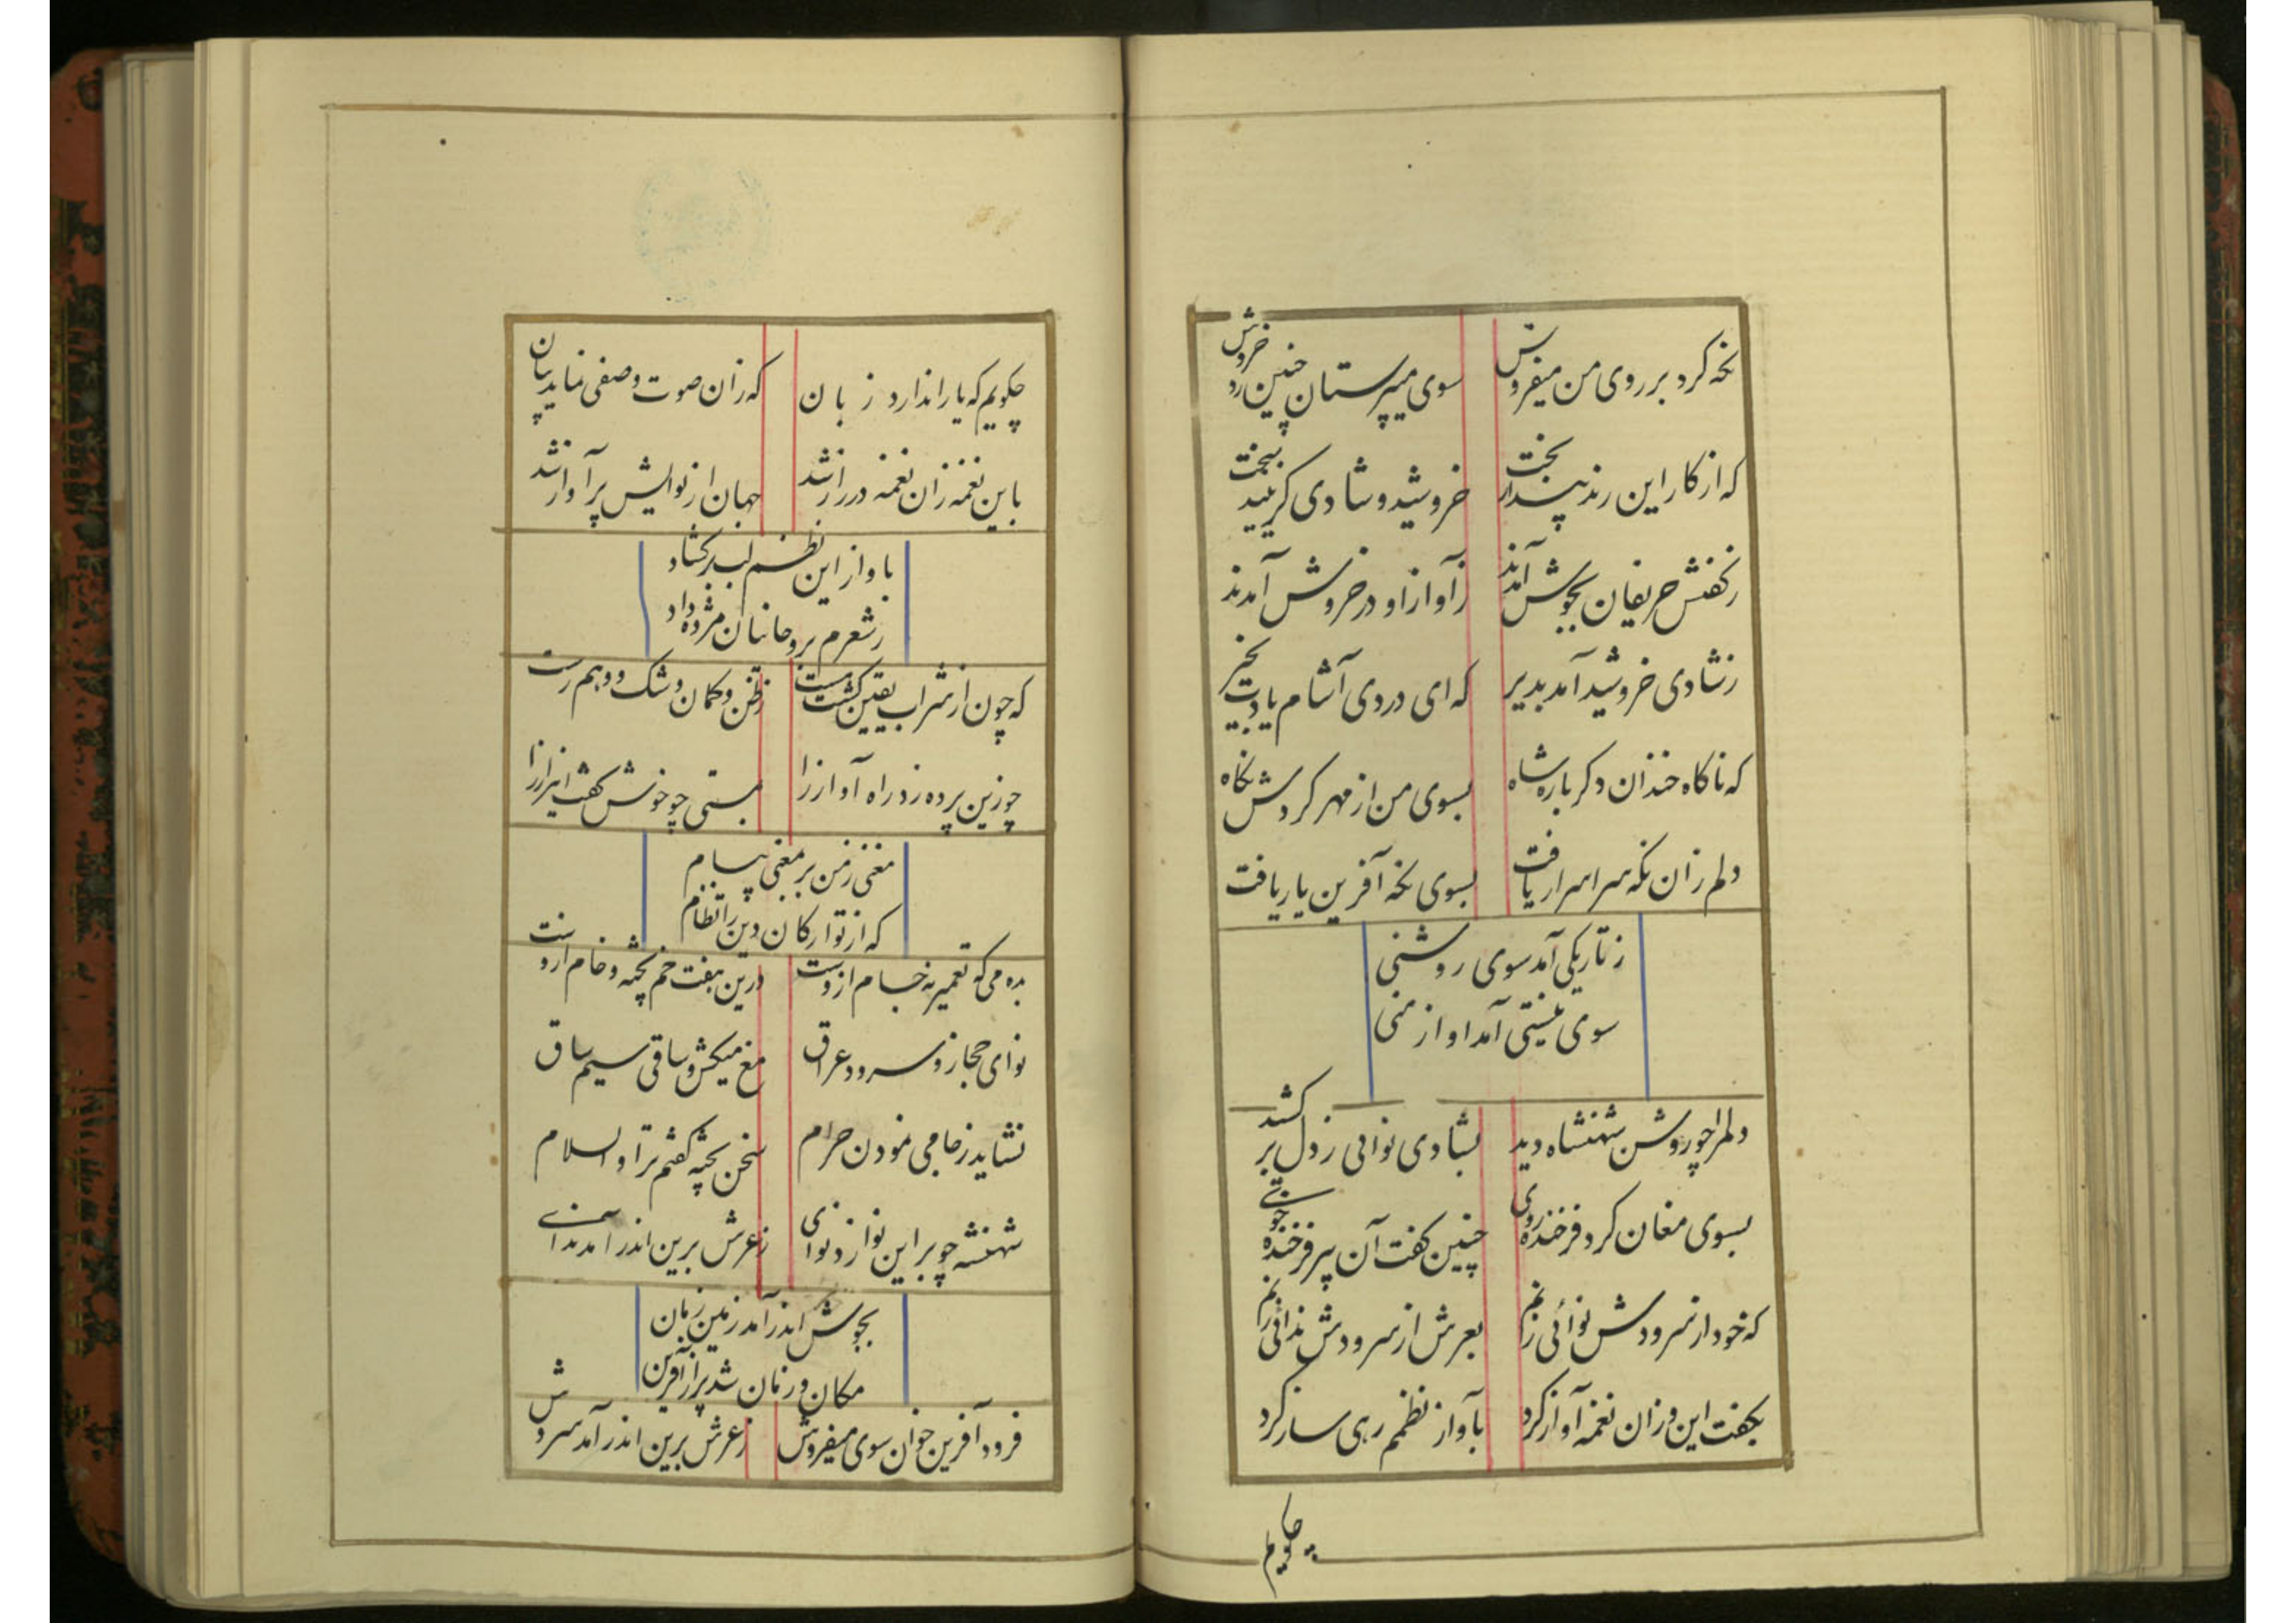 نکه کرد بر روی من میفروش سوی میپرستان چنین زد خروش
که از کار این رند بیدار بخت خروشید و شادی کزینید سخت
ز کفتش حریفان بجوش آمدند ز آواز او در خروش آمدند
ز شادی خروشید آمد بدیر که ای دردی آشام یادت بخیر
که ناکاه خندان دکر باره شاه بسوی من از مهر کردش نکاه
دلم زان نکه سر اسرار یافت بسوی نکه آفرین یار یافت
ز تاریکی آمد سوی روشنی
سوی نیستی آمد او از منی
دلم را چو روشن شهنشاه دید بشادی نوائی ز دل بر کشید
بسوی مغان کرد فرخنده روی چنین کفت آن پیر فرخنده خوی
که خود از سرودش نوائی زنم بعرش از سرودش ندائی زنم
بکفت این و زان نغمه آواز کرد بآواز نظمم رهی ساز کرد
چکویم
چکویم که یارا ندارد زبان که زان صوت وصفی نماید بیان
باین نغمه زان نغمه در راز شد جهان از نوایش پر آواز شد
بآواز این نظم لب برکشاد
ز شعرم بروحانیان مژده داد
که چون از شراب یقین کشت مست ز ظن و کمان و شک و وهم رست
چو زین پرده زد راه آواز را بمستی چو خوش کفت این راز را
مغنی ز من بر مغنی پیام
که از تو ارکان دین را نظام
بده می که تعمیر نه خام ازوست درین هفت خم پخته و خام اروست
نوای حجاز و سرود عراق مغ میکش و ساقی سیم ساق
نشاید ز جامی نمودن حرام سخن پخته کفتم ترا والسلام
شهنشه چو بر این نوا زد نوای ز عرش برین اندر آمد ندای
بجوش اندر آمد زمین زمان
مکان و زمان شد پر از آفرین
فرود آفرین خوان سوی میفروش ز عرش برین اندر آمد سروش